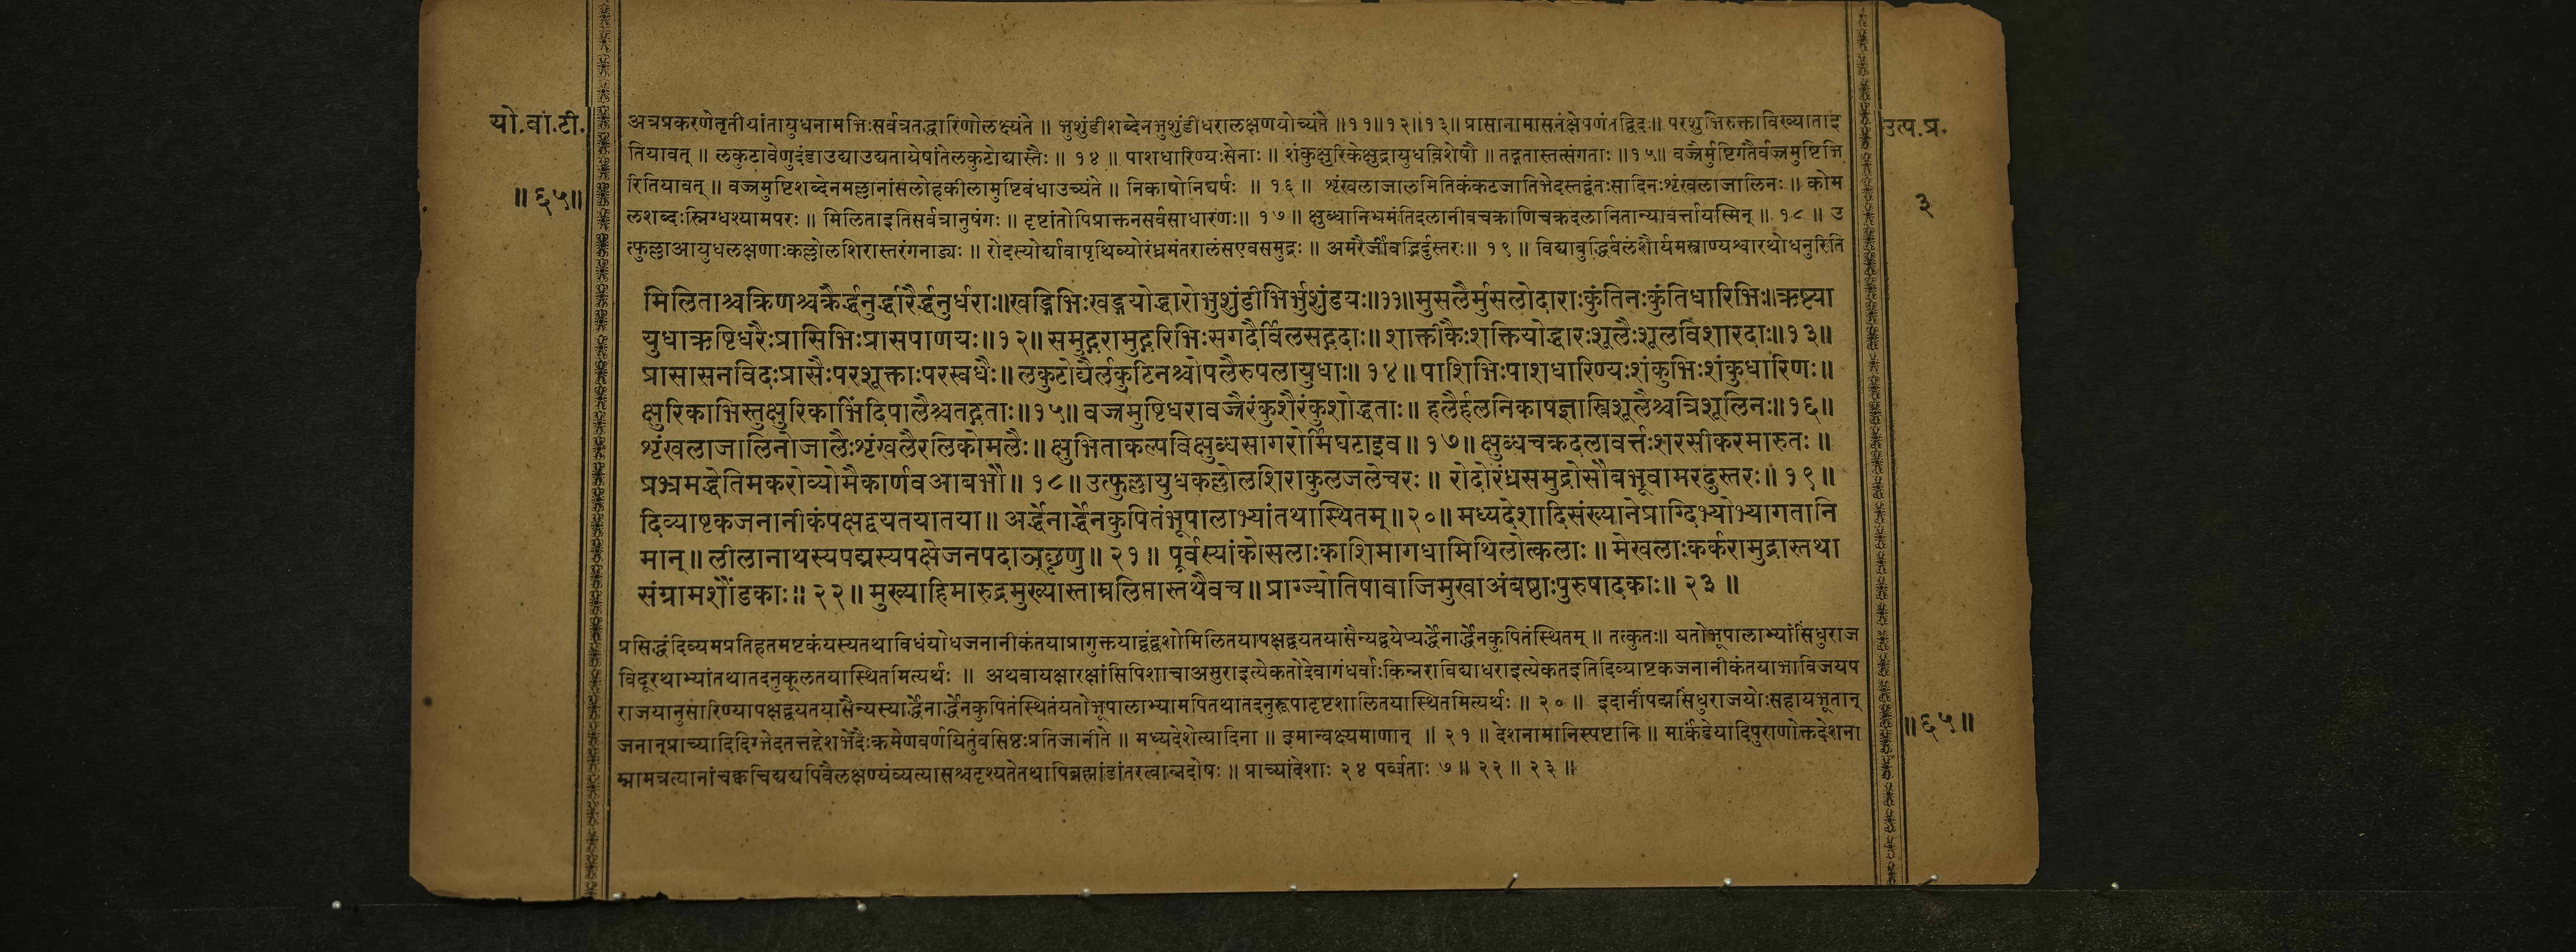 यो.वा.टी.
॥६५॥
अत्रप्रकरणेतृतीयांतायुधनामभिःसर्वत्रतद्धारिणोलक्ष्यंते ॥ भुशुंडीशब्देनभुशुंडीधरालक्षणयोच्यंते ॥११॥१२॥१३॥ प्रासानामासनंक्षेपणंतद्विदः॥ परशुभिरुक्ताविख्याताइ
तियावत् ॥ लकुटावेणुदंडाउद्याउद्यतायेषांतेलकुटोद्यास्तैः ॥ १४ ॥ पाशधारिण्यःसेनाः ॥ शंकुक्षुरिकेक्षुद्रायुधविशेषौ ॥ तद्गतास्तत्संगताः ॥१५॥ वज्रैर्मुष्टिगतैर्वज्रमुष्टिभि
रितियावत् ॥ वज्रमुष्टिशब्देनमल्लानांसलोहकीलामुष्टिबंधाउच्यंते ॥ निकाषोनिघर्षः ॥ १६ ॥ शृंखलाजालमितिकंकटजातिभेदस्तद्वंतःसादिनःशृंखलाजालिनः ॥ कोम
लशब्दःस्निग्धश्यामपरः ॥ मिलिताइतिसर्वत्रानुषंगः ॥ दृष्टांतोपिप्राक्तनसर्वसाधारणः॥ १७ ॥ क्षुब्धानिभ्रमंतिदलानीवचक्राणिचक्रदलानितान्यावर्त्तायस्मिन् ॥ १८ ॥ उ
त्फुल्लाआयुधलक्षणाःकल्लोलशिरास्तरंगनाड्यः ॥ रोदस्योर्द्यावापृथिव्योरंध्रमंतरालंसएवसमुद्रः ॥ अमरैर्जीवद्भिर्दुस्तरः॥ १९ ॥ विद्याबुद्धिर्बलंशौर्यमस्त्राण्यश्वारथोधनुरिति
मिलिताश्चक्रिणश्चक्रैर्द्धनुर्द्धारैर्द्धनुर्धराः॥खड्गिभिःखड्गयोद्धारोभुशुंडीभिर्भुशुंडयः॥११॥मुसलैर्मुसलोदाराःकुंतिनःकुंतिधारिभिः॥ऋष्ट्या
युधाऋष्टिधरैःप्रासिभिःप्रासपाणयः॥१२॥ समुद्गरामुद्गरिभिःसगदैर्विलसद्गदाः॥ शाक्तीकैःशक्तियोद्धारःशूलैःशूलविशारदाः॥१३॥
प्रासासनविदःप्रासैःपरशूक्ताःपरस्वधैः॥ लकुटोद्यैर्लकुटिनश्चोपलैरुपलायुधाः॥ १४॥ पाशिभिःपाशधारिण्यःशंकुभिःशंकुधारिणः॥
क्षुरिकाभिस्तुक्षुरिकाभिंदिपालैश्चतद्गताः॥१५॥ वज्रमुष्टिधरावज्रैरंकुशैरंकुशोद्धताः॥ हलैर्हलनिकाषज्ञास्त्रिशूलैश्चत्रिशूलिनः॥१६॥
शृंखलाजालिनोजालैःशृंखलैरलिकोमलैः॥ क्षुभिताकल्पविक्षुब्धसागरोर्मिघटाइव॥ १७॥ क्षुब्धचक्रदलावर्त्तःशरसीकरमारुतः ॥
प्रभ्रमद्धेतिमकरोव्योमैकार्णवआबभौ॥ १८॥ उत्फुल्लायुधकल्लोलशिराकुलजलेचरः ॥ रोदोरंध्रसमुद्रोसौबभूवामरदुस्तरः॥ १९॥
दिव्याष्टकजनानीकंपक्षद्वयतयातया॥ अर्द्धेनार्द्धेनकुपितंभूपालाभ्यांतथास्थितम्॥२०॥ मध्यदेशादिसंख्यानेप्राग्दिग्भ्योभ्यागतानि
मान्॥ लीलानाथस्यपद्मस्यपक्षेजनपदाञ्छृणु॥ २१॥ पूर्वस्यांकोसलाःकाशिमागधामिथिलोत्कलाः ॥ मेखलाःकर्करामुद्रास्तथा
संग्रामशौंडकाः॥ २२॥ मुख्याहिमारुद्रमुख्यास्ताम्रलिप्तास्तथैवच॥ प्राग्ज्योतिषावाजिमुखाअंबष्ठाःपुरुषादकाः॥ २३ ॥
प्रसिद्धंदिव्यमप्रतिहतमष्टकंयस्यतथाविधंयोधजनानीकंतयाप्रागुक्तयाद्वंद्वशोमिलितयापक्षद्वयतयासैन्यद्वयेप्यर्द्धेनार्द्धेनकुपितंस्थितम् ॥ तत्कुतः॥ यतोभूपालाभ्यांसिंधुराज
विदूरथाभ्यांतथातदनुकूलतयास्थितमित्यर्थः ॥ अथवायक्षारक्षांसिपिशाचाअसुराइत्येकतोदेवागंधर्वाःकिन्नराविद्याधराइत्येकतइतिदिव्याष्टकजनानीकंतयाभाविजयप
राजयानुसारिण्यापक्षद्वयतयासैन्यस्यार्द्धेनार्द्धेनकुपितंस्थितंयतोभूपालाभ्यामपितथातदनुरूपादृष्टशालितयास्थितमित्यर्थः ॥ २० ॥ इदानींपद्मसिंधुराजयोःसहायभूतान्
जनान्प्राच्यादिदिग्भेदतत्तद्देशभेदैःक्रमेणवर्णयितुंवसिष्ठःप्रतिजानीते ॥ मध्यदेशेत्यादिना ॥ इमान्वक्ष्यमाणान् ॥ २१ ॥ देशनामानिस्पष्टानि ॥ मार्कंडेयादिपुराणोक्तदेशना
म्नामत्रत्यानांचक्वचिद्यद्यपिवैलक्षण्यंव्यत्यासश्चदृश्यतेतथापिब्रह्मांडांतरत्वान्नदोषः ॥ प्राच्यांदेशाः २४ पर्व्वताः ७ ॥ २२ ॥ २३ ॥
उत्प.प्र.
३
॥६५॥